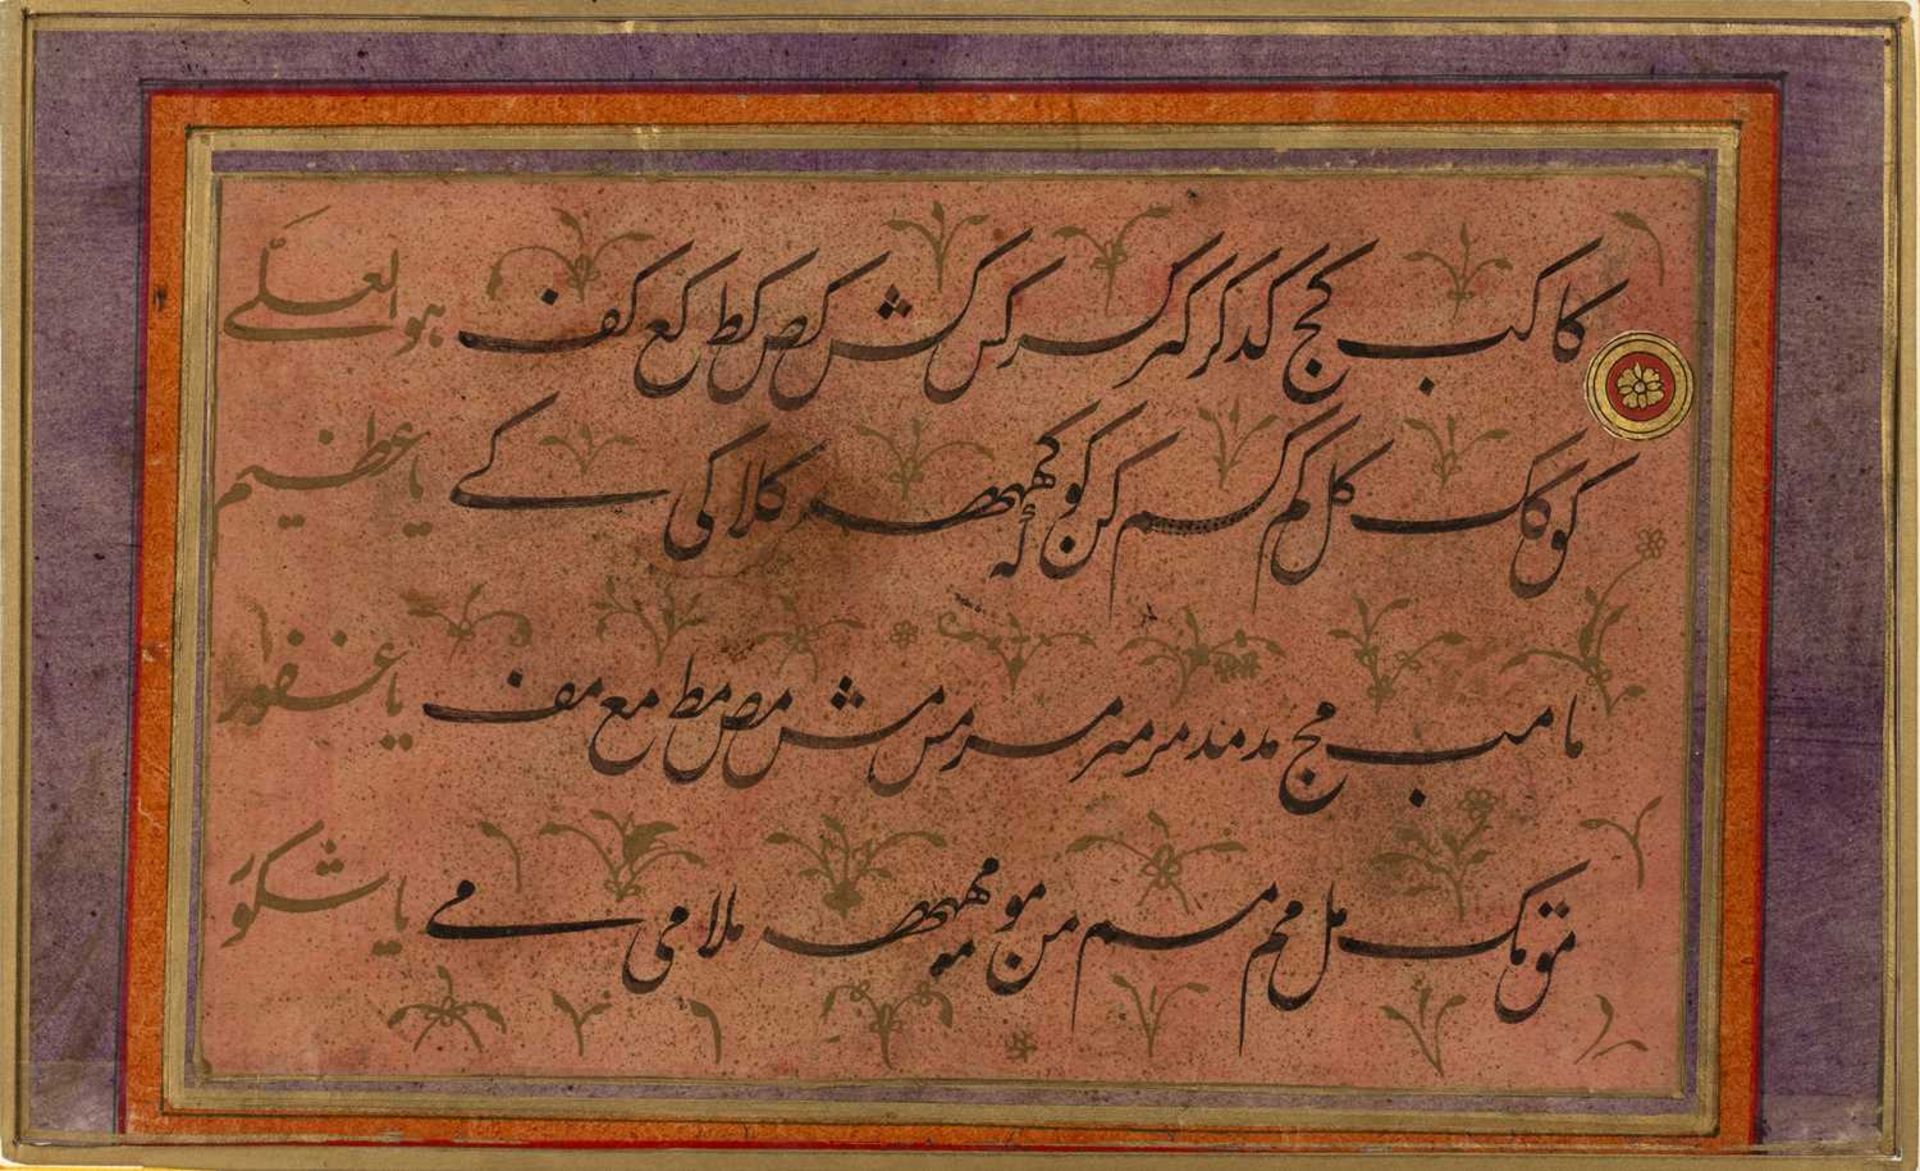 کا کب کج کد کر کبر کسر کس کش کص کط کع کف هو العلی
کو کاک کل کم کسم کن کو کهبهه که کلا کی کے یا عظیم
ما مب مج مد مند مر مبر مسر مس مش مص مط مع مف یا غفور
مو مک مل مم مسم من مو مهبهه مه ملا می مے یا شکور